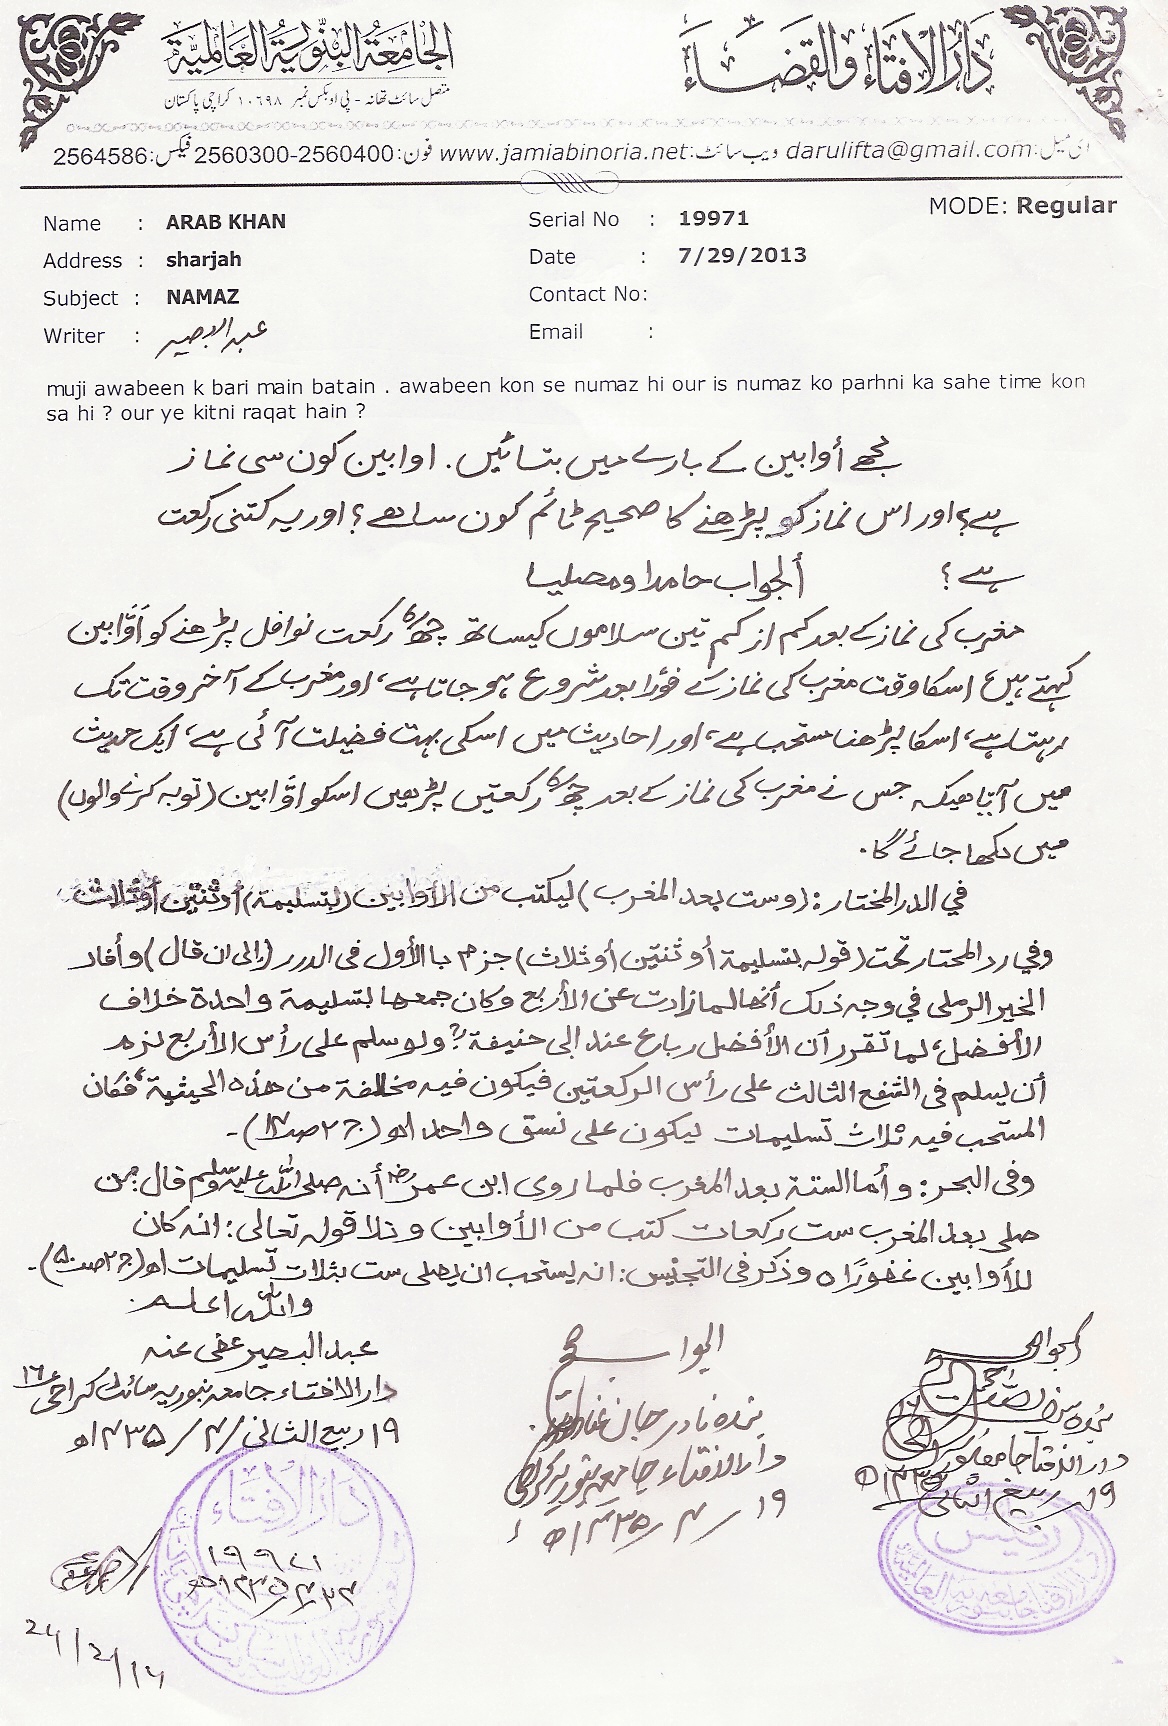 دَارُ الإفتَاء وَالقضَاء
الجَامعَةُ البِنّوريّة العَالميّة
متصل سائٹ تھانہ - پی او بکس نمبر ۱۰۶۹۸ کراچی پاکستان
ای میل:darulifta@gmail.com ویب سائٹ:www.jamiabinoria.net فون:2560300-2560400 فیکس:2564586
MODE: Regular
Name : ARAB KHAN Serial No : 19971
Address : sharjah Date : 7/29/2013
Subject : NAMAZ Contact No:
Writer : عبد البصیر Email :
muji awabeen k bari main batain . awabeen kon se numaz hi our is numaz ko parhni ka sahe time kon
sa hi ? our ye kitni raqat hain ?
مجھے أوابین کے بارے میں بتائیں. اوابین کون سی نماز
ہے؟ اور اس نماز کو پڑھنے کا صحیح ٹائم کون سا ھے؟ اور یہ کتنی رکعت
ہے؟ ألجواب حامدا ومصلیا
مغرب کی نماز کے بعد کم از کم تین سلاموں کیساتھ چھ رکعت نوافل پڑھنے کو اَوَّابین
کہتے ہیں اسکا وقت مغرب کی نماز کے فورًا بعد شروع ہو جاتا ہے، اور مغرب کے آخر وقت تک
رہتا ہے، اسکا پڑھنا مستحب ہے، اور احادیث میں اسکی بہت فضیلت آئی ہے، ایک حدیث
میں آتا ھیکہ جس نے مغرب کی نماز کے بعد چھ رکعتیں پڑھیں اسکو اوَّابین (توبہ کرنے والوں)
میں لکھا جائے گا۔
في الدر المختار: (وست بعد المغرب) ليكتب من الأوابين (بتسليمة) أو ثنتين أو ثلاث
وفي رد المحتار تحت (قوله بتسليمة أو ثنتين أو ثلاث) جزم بالأول في الدرر (إلى ان قال) وأفاد
الخير الرملى في وجه ذلك أنها لما زادت عن الأربع وكان جمعها بتسليمة واحدة خلاف
الأفضل، لما تقرر أن الأفضل رباع عند ابى حنيفة ولو سلم على رأس الأربع لزم
أن يسلم في الشفع الثالث على رأس الركعتين فيكون فيه مخالفة من هذه الحيثية، فكان
المستحب فيه ثلاث تسليمات ليكون على نسق واحد اه (ج٢ صـ١٤)۔
وفى البحر: وأما الستة بعد المغرب فلما روى ابن عمرؓ أنه صلى الله عليه وسلم قال: من
صلى بعد المغرب ست ركعات كتب من الأوابين وتلا قوله تعالى: انه كان
للأوابين غفورًا ٥ وذكر فى التجنيس: انه يستحب ان يصلى ست بثلاث تسليمات اه (ج٢ صـ٥٠)۔
والله اعلم
عبد البصیر عفی عنہ
دار الافتاء جامعہ بنوریہ سائٹ کراچی ۱۶
۱۹ ربیع الثانی / ۴ / ۱۴۳۵ھ
الجواب صحیح
بندہ نادر جان
دار الافتاء جامعہ بنوریہ کراچی
۱۹ / ۴ / ۱۴۳۵ھ
الجواب صحیح
دار الافتاء جامعہ بنوریہ کراچی
۱۹ ربیع الثانی ۱۴۳۵ھ
رئیس
دار الافتاء جامعہ بنوریہ العالمیہ
دار الافتاء
۱۹۹۷۱
24/2/14